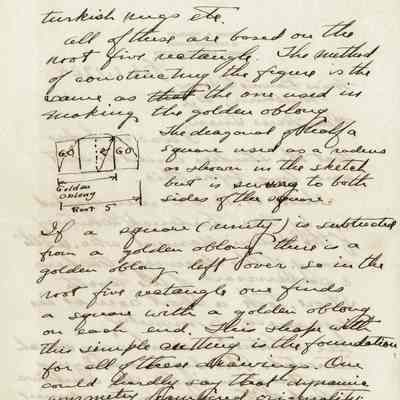 turkish rugs etc.
all of these are based on the
root five rectangle. The method
of constructing the figure is the
same as that the one used in
making the golden oblong
The diagonal of half a
square used as a radius
as shown in the sketch
but is swung to both
sides of the square.
GO
GO
Golden
Oblong
Root 5
If a square (unity) is subtracted
from a golden oblong there is a
golden oblong left over so in the
root five rectangle one finds
a square with a golden oblong
on each end. This shape with
this simple cutting is the foundation
for all of these drawings. One
could hardly say that dynamic
symmetry